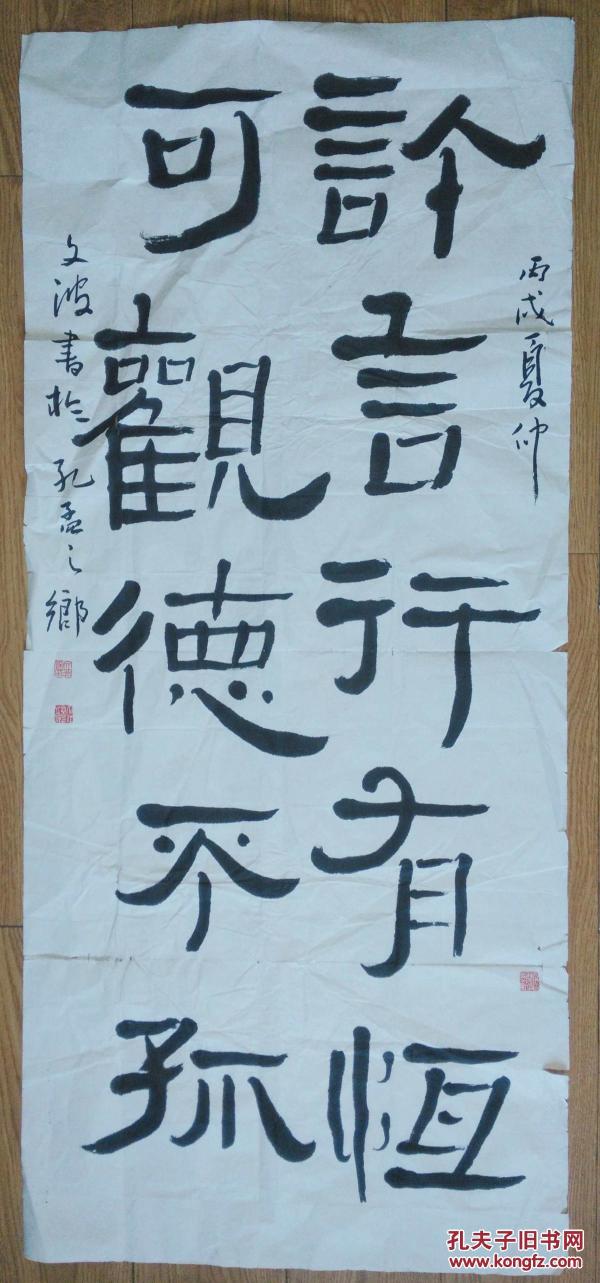 丙戌夏仲
許言行有恆
可觀德不孤
文波書於孔孟之鄉
孔夫子旧书网
www.kongfz.com